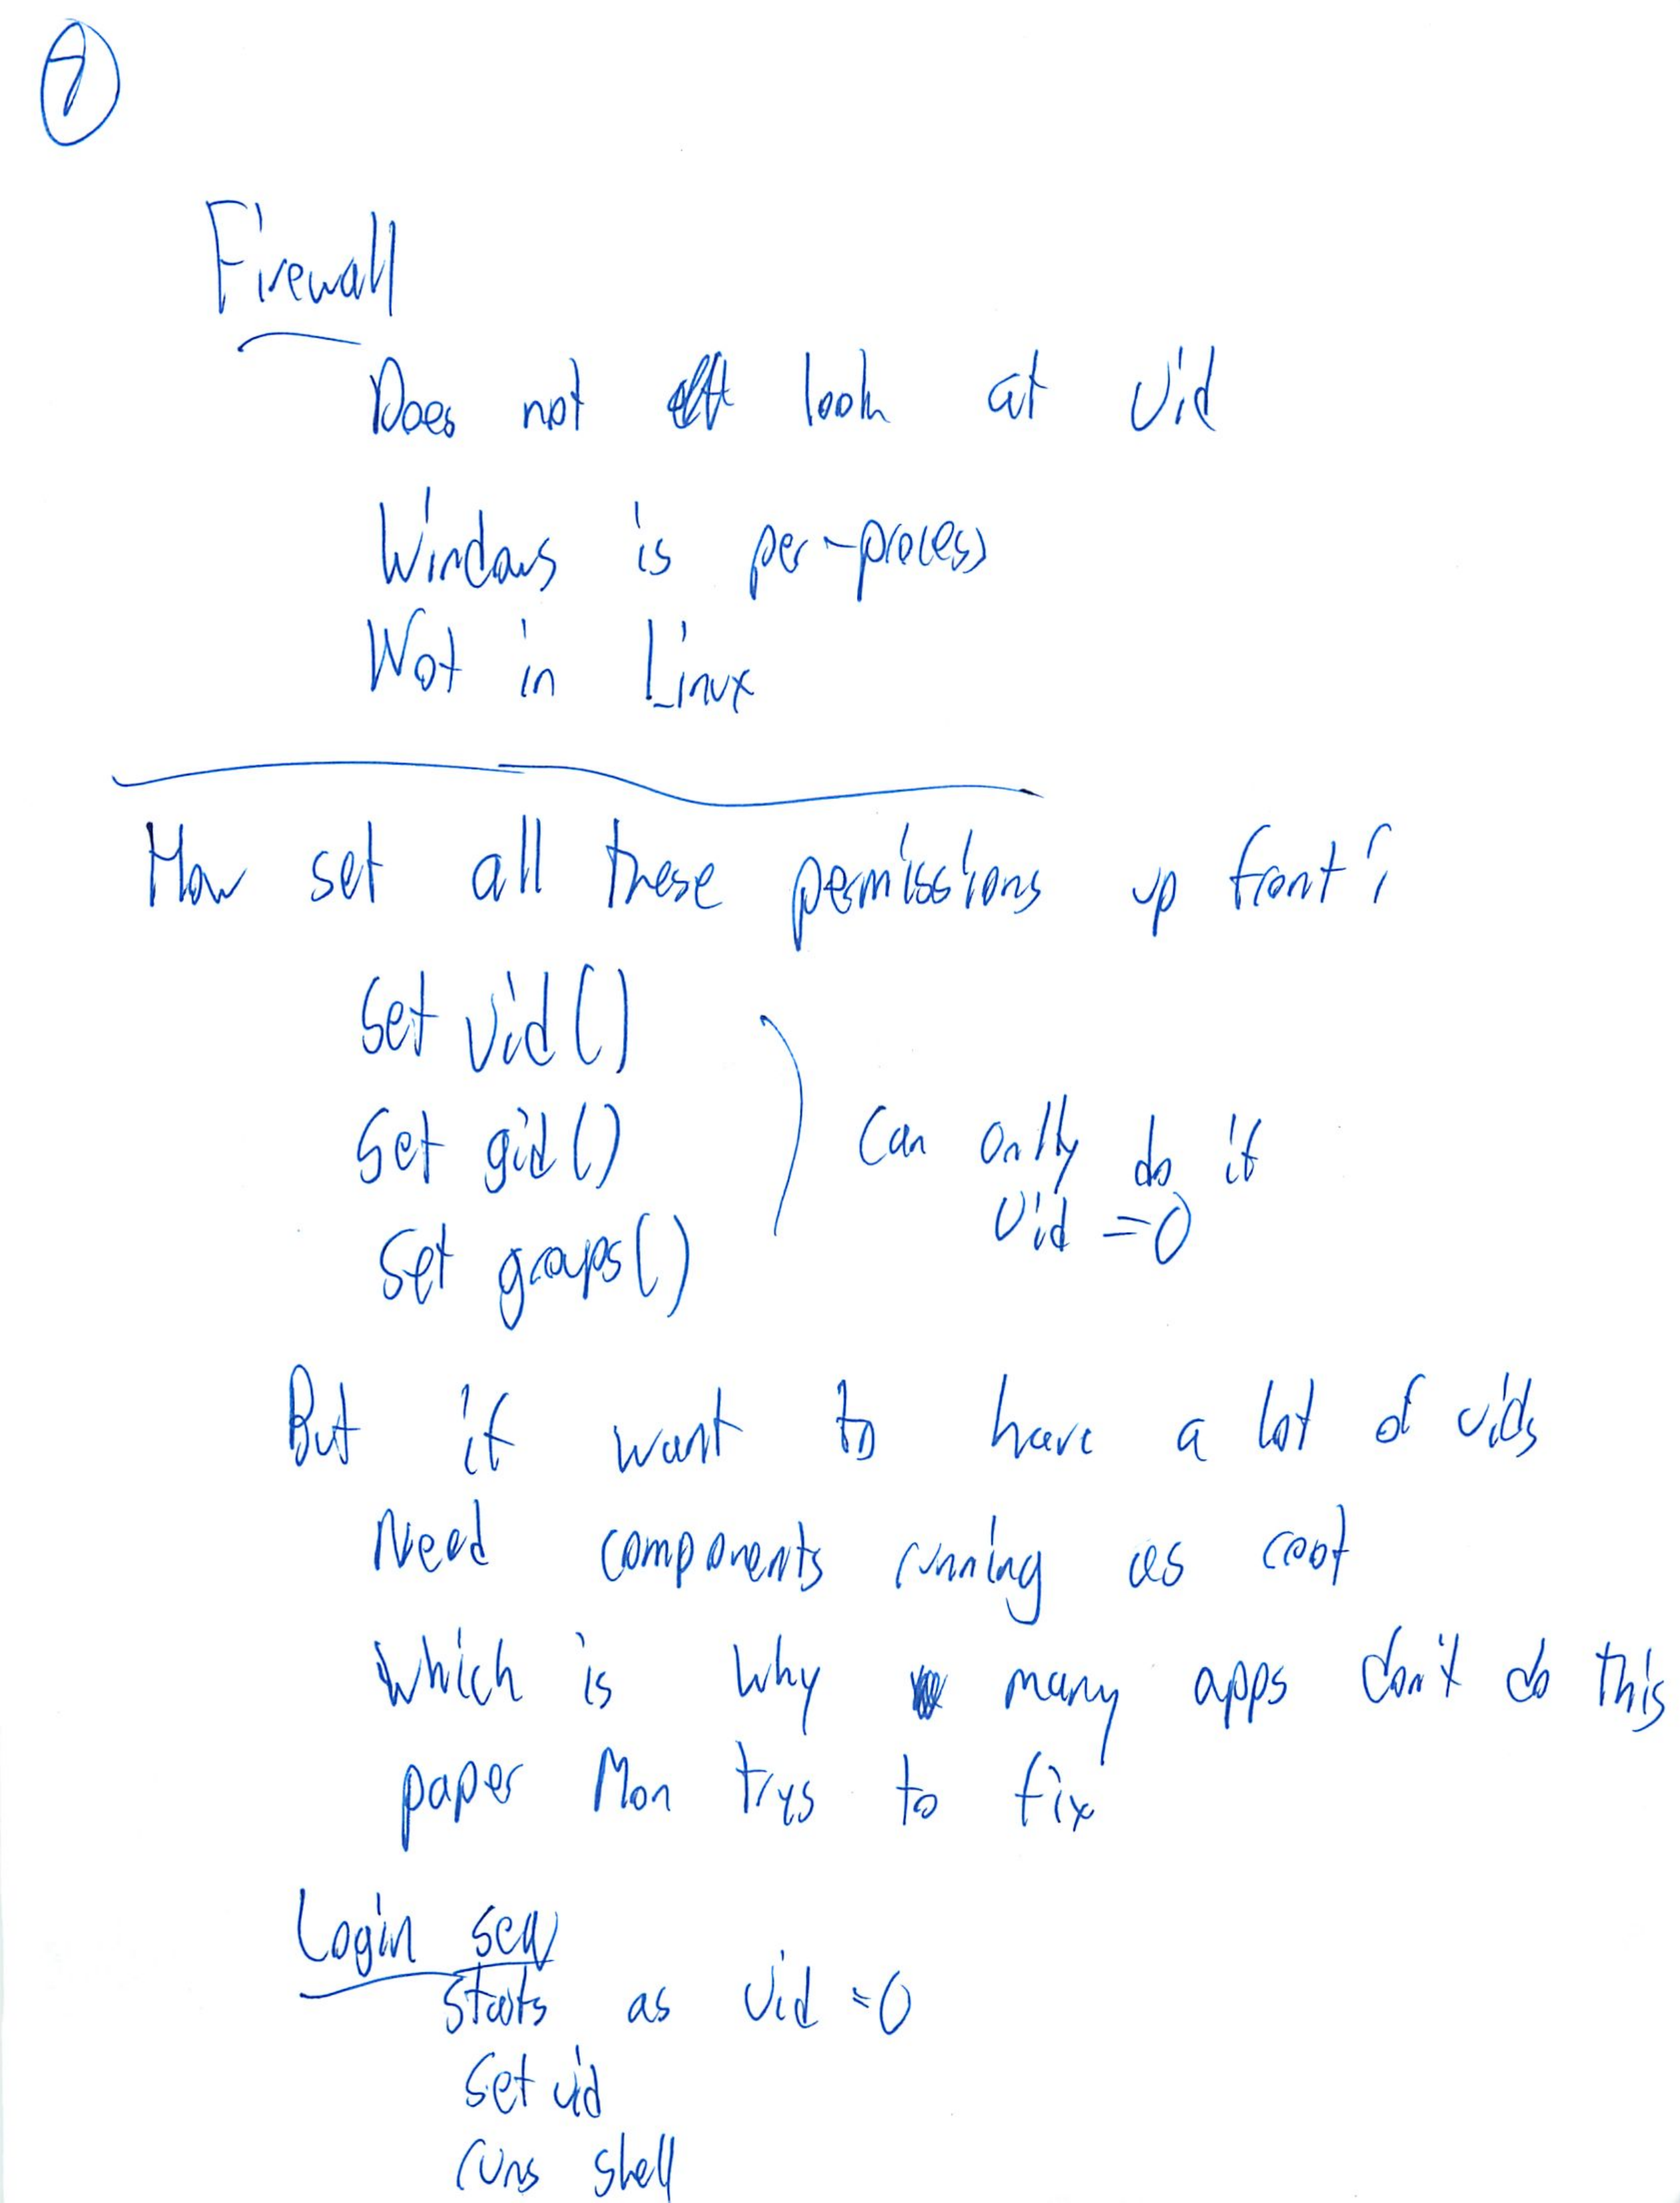 7
Firewall
Does not look at uid
Windows is per-process
Not in Linux
How set all these permissions up front?
Set uid()
Set gid()
Set groups()
Can only do if
uid = 0
But if want to have a lot of uids
Need components running as root
Which is why many apps don't do this
paper Mon trys to fix
Login seq
Starts as uid = 0
Set uid
runs shell